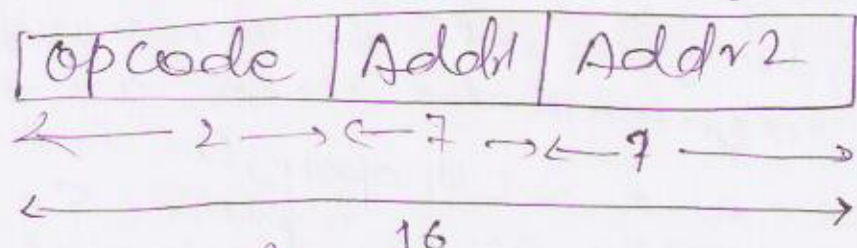 Opcode Addr1 Addr2
2 7 7
16